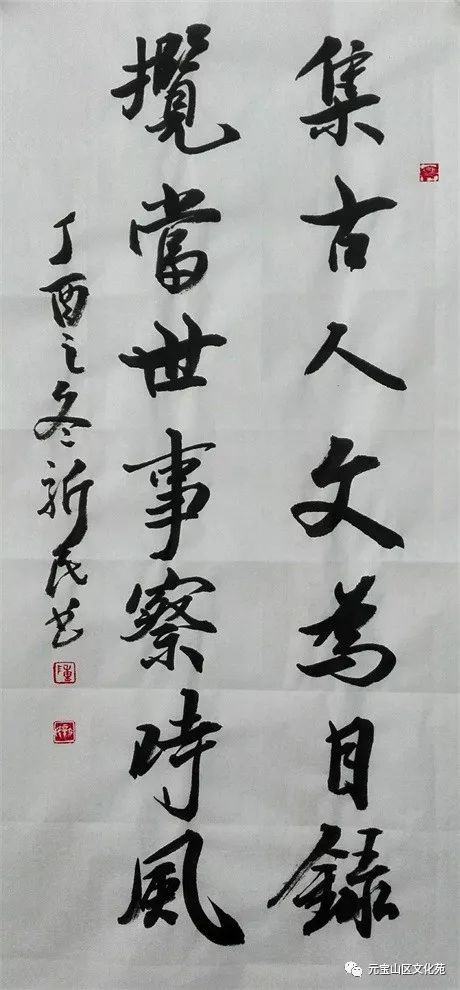 集古人文為目錄
攬當世事察時風
丁酉之冬新民书
元宝山区文化苑